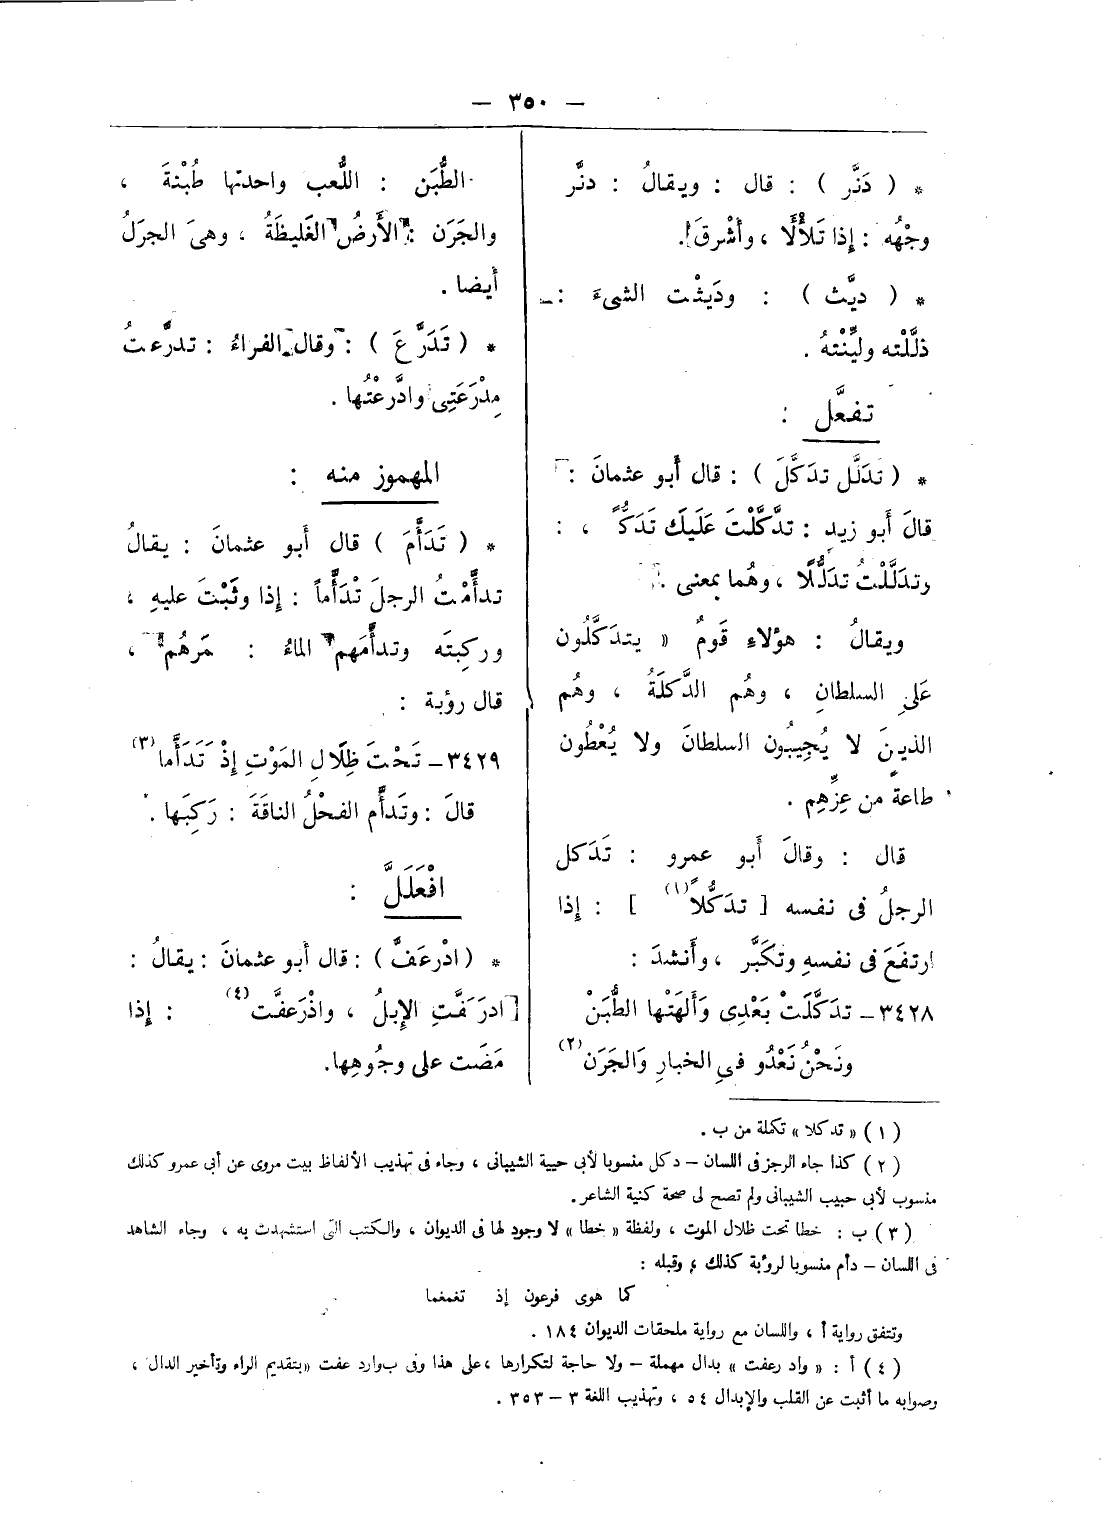 — ٣٥٠ —
* ( دَنَّر ) : قال : ويقالُ : دنَّر
وجْهُه : إذا تَلَأْلَأَ ، وأشْرقَ.
* ( ديَّث ) : ودَيثْت الشىءَ :
ذلَّلْته وليَّنْتهُ .
تفعَّل :
* ( تدَلَّل تدَكَّلَ ) : قال أَبو عثمانَ :
قالَ أَبو زيدٍ : تدَّكَّلْتَ عَلَيكَ تَدَكُّ ، :
وتدَلَّلْتُ تدَلُّلًا ، وهُما بمعنى .
ويقالُ : هؤلاءِ قَومٌ « يتدَكَّلُون
عَلىِ السلطانِ ، وهُم الدَّكَلَةُ ، وهُم
الذينَ لا يُجِيبُون السلطانَ ولا يُعْطُون
طاعة من عِزِّهِم .
قال : وقالَ أَبو عمرو : تَدَكل
الرجلُ فى نفسه [ تدَكُّلاً (١) ] : إذا
ارتفَعَ فى نفسهِ وتكَبَّر ، وأَنشدَ :
٣٤٢٨ – تدَكَّلَتْ بَعْدِى وَأَلهَتْها الطُّبَنْ
ونَحْنُ نَعْدُو فىِ الخبارِ وَالجَرَن (٢)
الطُّبَن : اللُّعب واحدتها طُبْنةَ ،
والجَرَن : الأَرضُ الغَليظَةُ ، وهىَ الجرَلُ
أيضا .
* ( تَدَرَّعَ ) : وقال الفراءُ : تدرَّعتُ
مِدْرَعَتِى وادَّرعْتُها .
المهموز منه :
* ( تَدَأَّمَ ) قال أَبو عثمانَ : يقالُ
تدأَّمْتُ الرجلَ تْدَأُّماً : إذا وثَبْتَ عليهِ ،
وركِبتَه وتدأَّمَهم الماءُ : غَمرهُم ،
قال رؤبة :
٣٤٢٩ – تَحْتَ ظِلَالِ المَوْتِ إذْ تَدَأَّما (٣)
قالَ : وتَدأَّم الفحْلُ الناقَةَ : رَكِبَها .
افْعَلَلَّ :
* ( ادْرعَفَّ ) : قال أَبو عثمانَ : يقالُ :
[ ادرَعَفَّتِ الإِبلُ ، واذْرَعفَّت (٤) : إذا
مَضَت على وجُوهِها.
( ١ ) « تدكلا » تكملة من ب .
( ٢ ) كذا جاء الرجز فى اللسان – دكل منسوبا لأبى حيية الشيبانى ، وجاء فى تهذيب الألفاظ بيت مروى عن أبى عمرو كذلك
منسوب لأبى حبيب الشيبانى ولم تصح لى صحة كنية الشاعر .
( ٣ ) ب : خطا تحت ظلال الموت ، ولفظة « خطا » لا وجود لها فى الديوان ، والكتب التى استشهدت به ، وجاء الشاهد
فى اللسان – دأم منسوبا لرؤبة كذلك ، وقبله :
كما هوى فرعون إذ تغمغما
وتتفق رواية أ ، واللسان مع رواية ملحقات الديوان ١٨٤ .
( ٤ ) أ : « واد رعفت » بدال مهملة – ولا حاجة لتكرارها ، على هذا وفى ب وارد عفت « بتقديم الراء وتأخير الدال ،
وصوابه ما أثبت عن القلب والإبدال ٥٤ ، وتهذيب اللغة ٣ – ٣٥٣ .